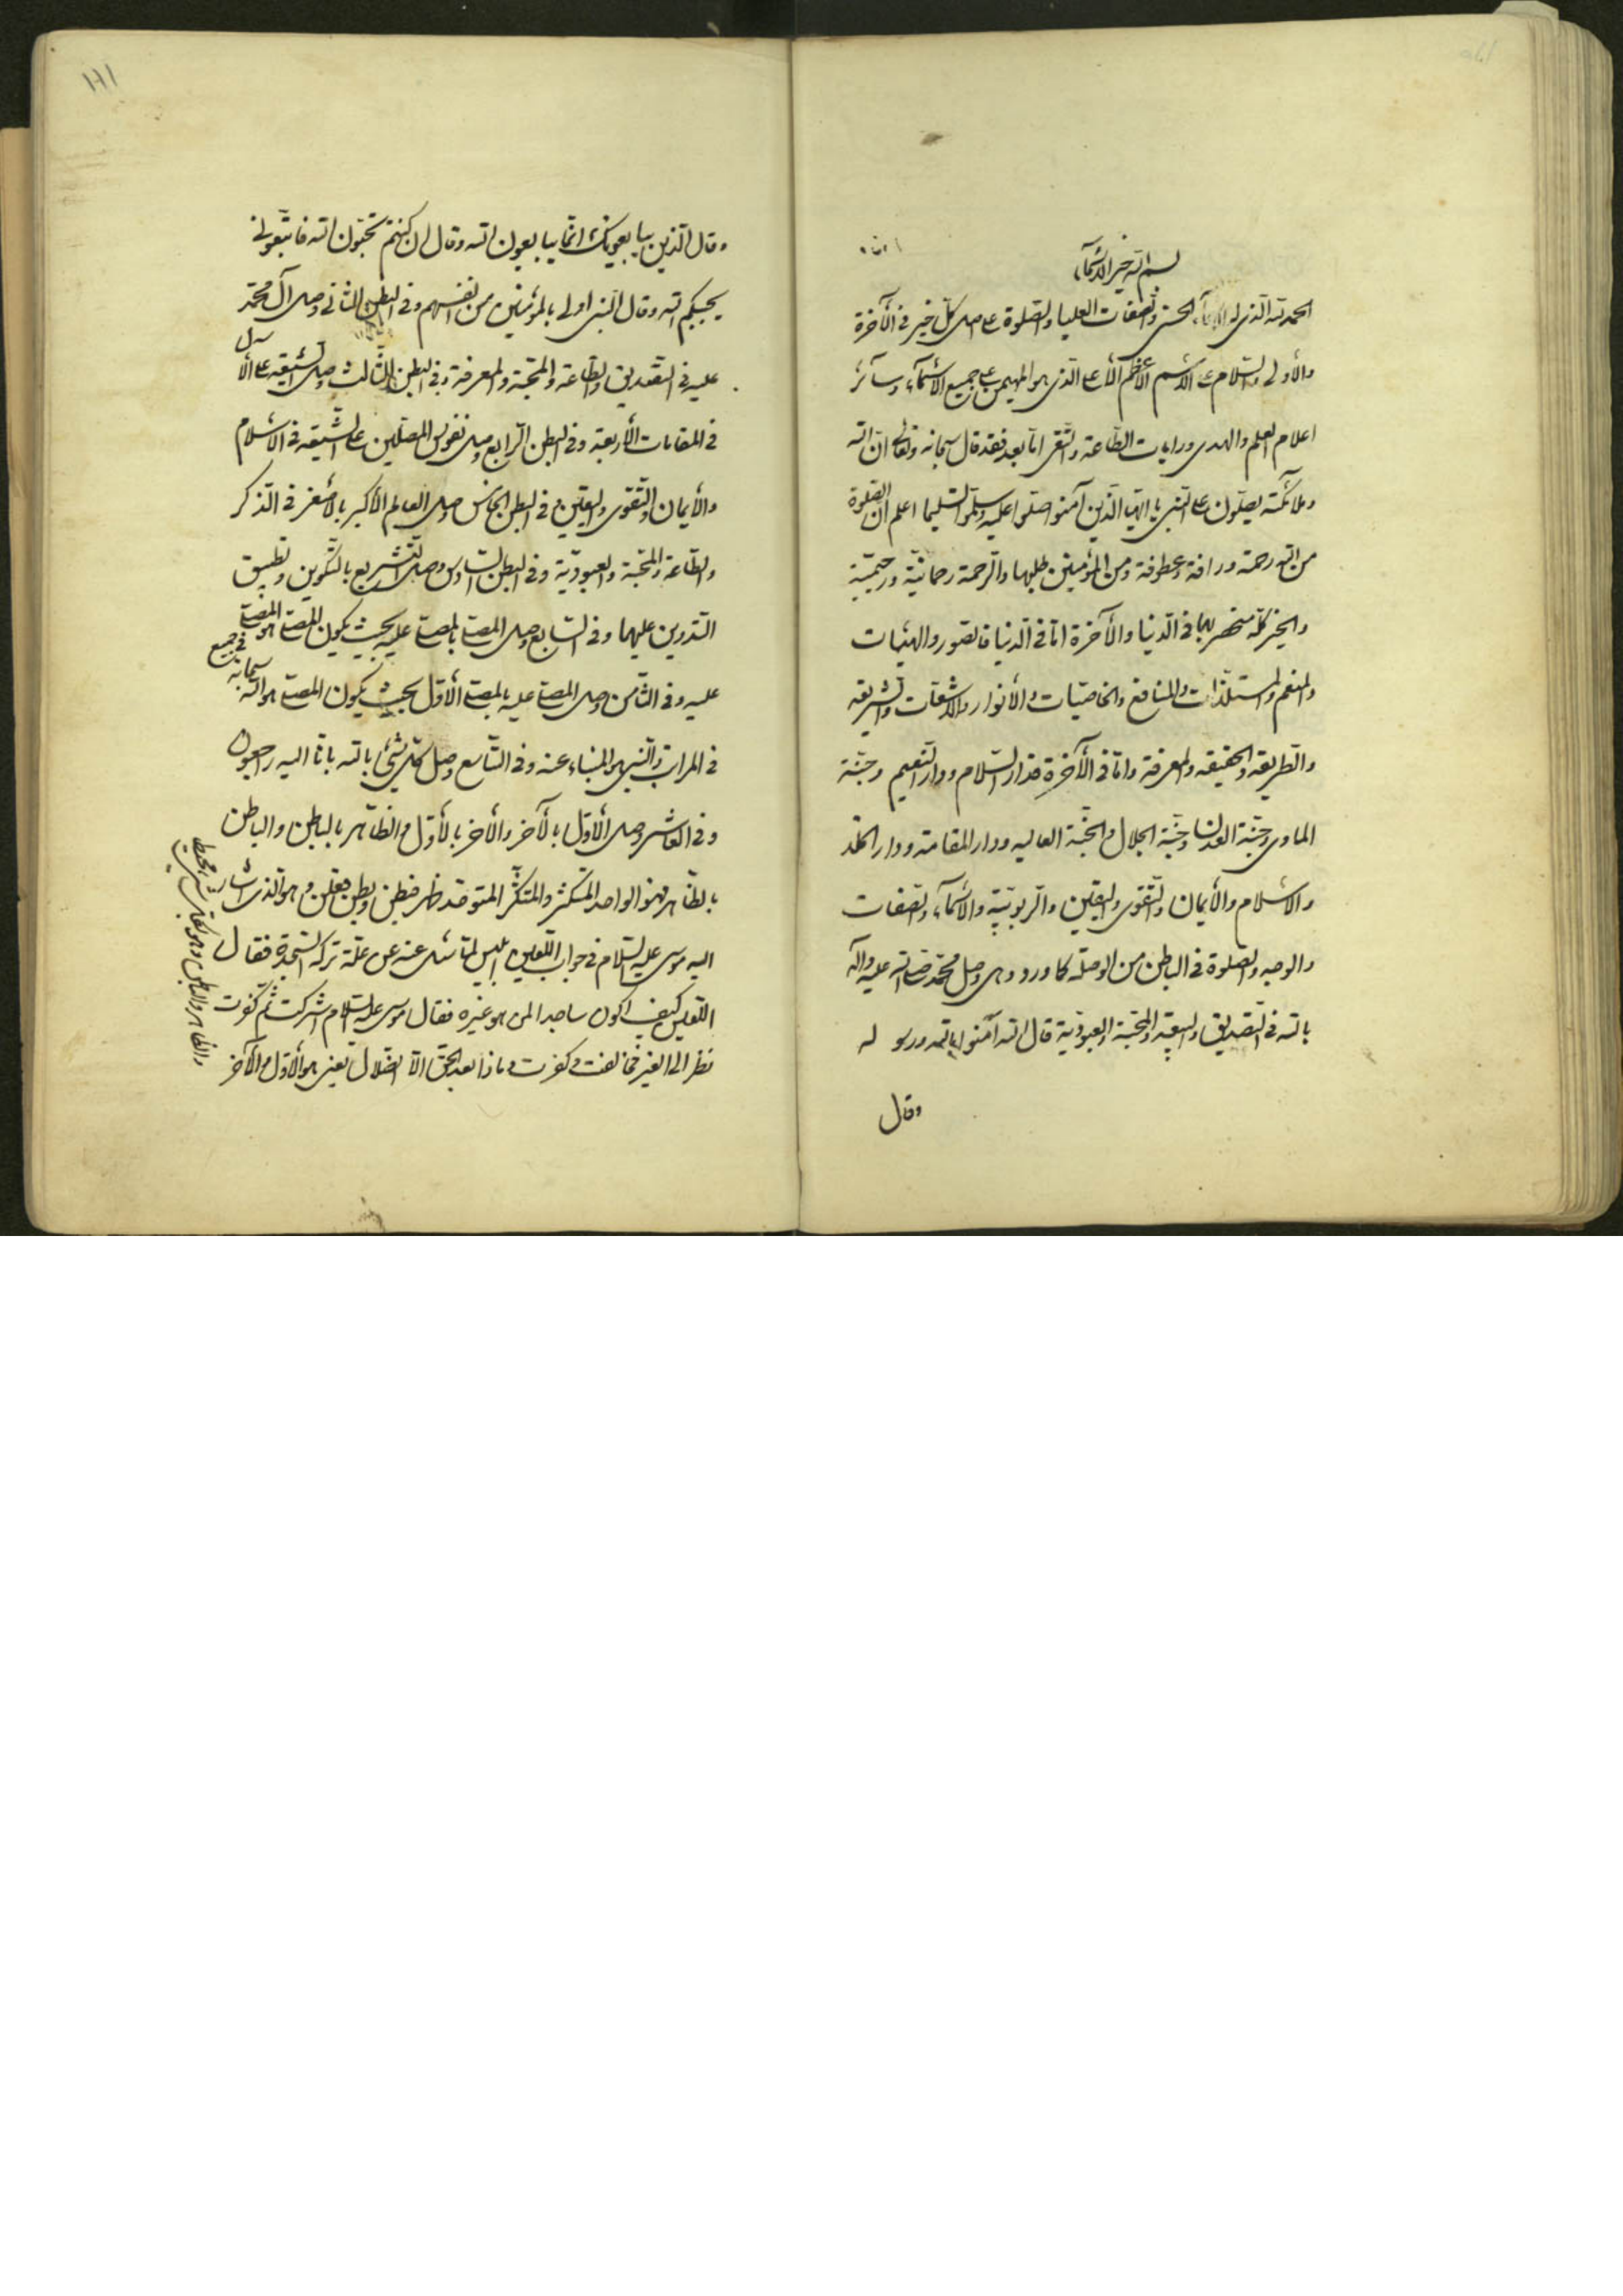 بسم الله خير الأسمآء
الحمد لله الذى له الأسمآء الحسنى والصفات العليا والصلوة على اصل كل خير فى الآخرة
والأولى والسلام على الاسم الأعظم الأعلى الذى هو المهيمن على جميع الأسمآء وسآئر
اعلام العلم والهدى ورايات الطاعة والتقى اما بعد فقد قال سبحانه وتعالى ان الله
وملائكته يصلون على النبى يا ايها الذين آمنوا صلوا عليه وسلموا تسليما اعلم ان الصلوة
من الله رحمة ورافة وعطوفة ومن المؤمنين طلبها والرحمة رحمانية ورحيمية
والخير كله منحصر بهما فى الدنيا والآخرة اما فى الدنيا فالصور والهيئات
والنعم والمستلذات والمنافع والخاصيات والأنوار والاشعات والشريعه
والطريقه والحقيقه والمعرفة واما فى الآخرة فدار السلام ودار النعيم وجنة
الماوى وجنة العدن وجنة الجلال والجنة العاليه ودار المقامة ودار الخلد
والاسلام والأيمان والتقوى واليقين والربوبية والأسمآء والصفات
والوجه والصلوة فى الباطن من الوصله كما ورد وهى وصل محمد صلى الله عليه وآله
بالله فى التصديق والبيعة والمحبة والعبودية قال الله آمنوا بالله ورسوله
وقال
وقال الذين يبايعونك انما يبايعون الله وقال ان كنتم تحبون الله فاتبعونى
يحببكم الله وقال النبى اولى بالمؤمنين من انفسهم وفى البطن الثانى وصل آل محمد
عليه فى التصديق والطاعة والمحبة والمعرفة وفى البطن الثالث وصل الشيعة على الآل
فى المقامات الأربعة وفى البطن الرابع وصل نفوس المصلين على الشيعه فى الاسلام
والأيمان والتقوى واليقين وفى البطن الخامس وصل العالم الأكبر بالأصغر فى الذكر
والطاعة والمحبة والعبودية وفى البطن السادس وصل التشريع بالتكوين وتطبيق
التدوين عليهما وفى السابع وصل المصلى بالمصلى عليه بحيث يكون المصلى هو المصلى
عليه وفى الثامن وصل المصلى عليه بالمصلى الأول بحيث يكون المصلى هو الله سبحانه فى جميع
فى المراتب والنبى هو المنباء عنه وفى التاسع وصل كل شئ بالله بانا اليه راجعون
وفى العاشر وصل الأول بالآخر والآخر بالأول والظاهر بالباطن والباطن
بالظاهر فهو الواحد المتكثر والمتكثر المتوحد ظهر فبطن وبطن فعلن وهو الذى اشار
اليه موسى عليه السلام فى جواب اللعين ابليس لما سئل عنه عن علة تركه السجدة فقال
اللعين كيف اكون ساجدا لمن هو غيره فقال موسى عليه السلام اشركت ثم كفرت
نظرا الى الغير فخالفت وكفرت وماذا بعد الحق الا الضلال يعنى هو الأول والآخر
والظاهر والباطن وهو بكل شئ محيط